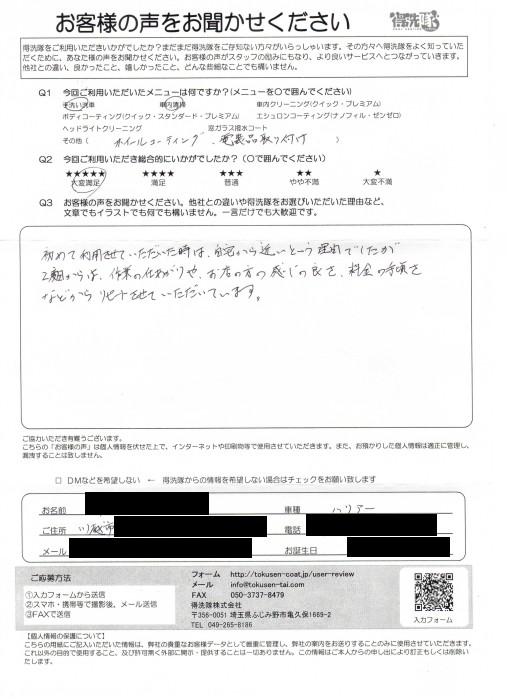 お客様の声をお聞かせください
得洗隊
得洗隊をご利用いただきいかがでしたか？まだまだ得洗隊をご存知ない方々がいらっしゃいます。その方々へ得洗隊をよく知っていた
だくために、あなた様の声をお聞かせください。お客様の声がスタッフの励みにもなり、より良いサービスへとつながっていきます。
他社との違い、良かったこと、嬉しかったこと、どんな些細なことでも構いません。
Q1 今回ご利用いただいたメニューは何ですか？（メニューを〇で囲んでください）
手洗い洗車 車内清掃 車内クリーニング（クイック・プレミアム）
ボディコーティング（クイック・スタンダード・プレミアム） エシュロンコーティング（ナノフィル・ゼンゼロ）
ヘッドライトクリーニング 窓ガラス撥水コート
その他（ ホイールコーティング、電装品取り付け ）
Q2 今回ご利用いただき総合的にいかがでしたか？（〇で囲んでください）
★★★★★ ★★★★ ★★★ ★★ ★
大変満足 満足 普通 やや不満 大変不満
Q3 お客様の声をお聞かせください。他社との違いや得洗隊をお選びいただいた理由など、
文章でもイラストでも何でも構いません。一言だけでも大歓迎です。
初めて利用させていただいた時は、自宅から近いという理由でしたが
2回目からは、作業の仕上がりや、お店の方の感じの良さ、料金の手頃さ
などからリピートさせていただいています。
ご協力いただき有難うございます。
こちらの「お客様の声」は個人情報を伏せた上で、インターネットや印刷物等で使用させていただきます。また、お預かりした個人情報は適正に管理し、
漏洩することは致しません。
□ DMなどを希望しない ← 得洗隊からの情報を希望しない場合はチェックをお願い致します
お名前 車種 ハリアー
ご住所 川越市 電話
メール お誕生日
ご応募方法
①入力フォームから送信
②スマホ・携帯等で撮影後、メール送信
③FAXで送信
フォーム http://tokusen-coat.jp/user-review
メール info@tokusen-tai.com
FAX 050-3737-8479
得洗隊株式会社
〒356-0051 埼玉県ふじみ野市亀久保1669-2
TEL 049-265-8186
入力フォーム
【個人情報の保護について】
こちらの用紙にご記入いただいた情報は、弊社の貴重なお客様データとして厳重に管理し、弊社の案内をお送りすることのみに使用させていただきます。
これ以外の目的で使用すること、及び許可無く外部に開示・提供することは一切ありません。この情報はご本人からの申し出により訂正もしくは削除い
たします。